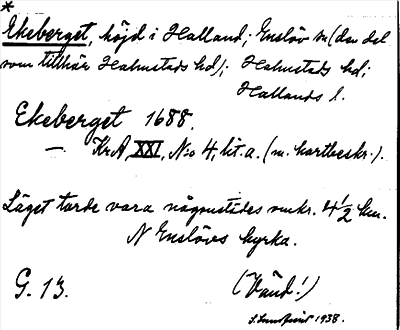 *
Ekeberget, höjd i Halland; Enslöv sn (den del
som tillhör Halmstads hd); Halmstads hd;
Hallands l.
Ekeberget 1688.
— KrA XXI, No 4, lit. a. (m. kartbeskr.).
Läget torde vara någonstädes omkr. 4 1/2 km.
N Enslövs kyrka.
G. 13. (Vänd!)
1938.